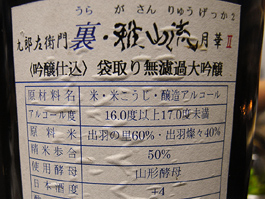 うら が さん りゅう げっ か 2
九郎左衛門 裏・雅山流 月華 Ⅱ
〈吟醸仕込〉袋取り無濾過大吟醸
原材料名 米・米こうじ・醸造アルコール
アルコール度 16.0度以上17.0度未満
原料米 出羽の里60%・出羽燦々40%
精米歩合 50%
使用酵母 山形酵母
日本酒度 +4